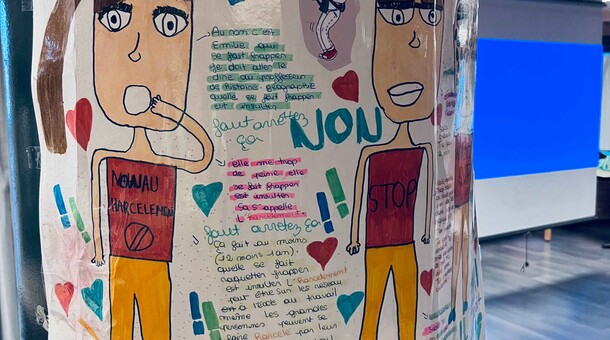 Au nom c'est
Emilie qui
se fait frapper
je doit aller le
dire au proffesseur
de histoire-géographie
quelle se fait frapper
est insulter
faut arrêttez
ça
NON
elle me trop
de peine elle
se fait frapper
est insulter
sa s'appelle
faut arretez ça
ça fait au moins
(12 mois 1 an).
quelle se fait
frapper
est insulter l'
peut être sur les réseau
à l'école au travail
même les grande
personnes peuvent se
faire par leur
NON AU
HARCELEMEN
STOP